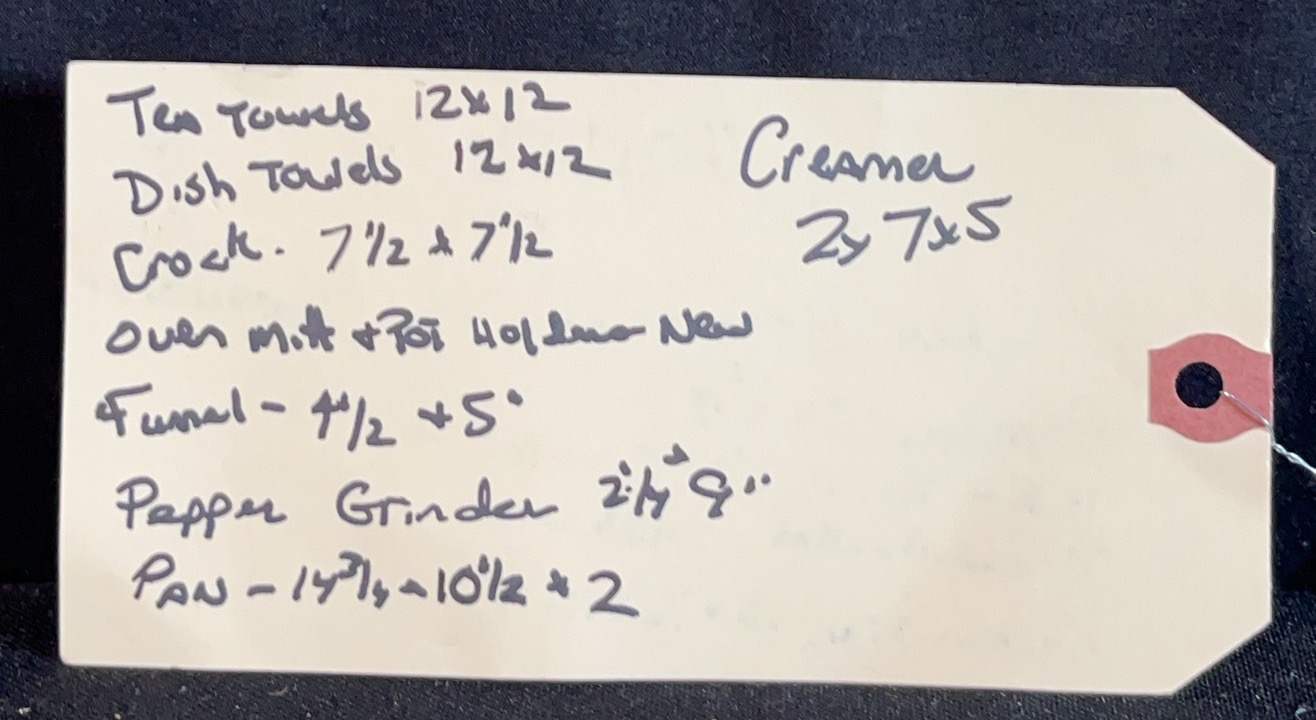 Tea Towels 12x12
Dish Towels 12x12
Crock. 7 1/2 x 7 1/2
Oven Mitt + Pot Holder New
Funnel - 4 1/2 x 5"
Pepper Grinder 2 1/4 x 9"
PAN - 14 3/4 x 10 1/2 x 2
Creamer
2x 7x5